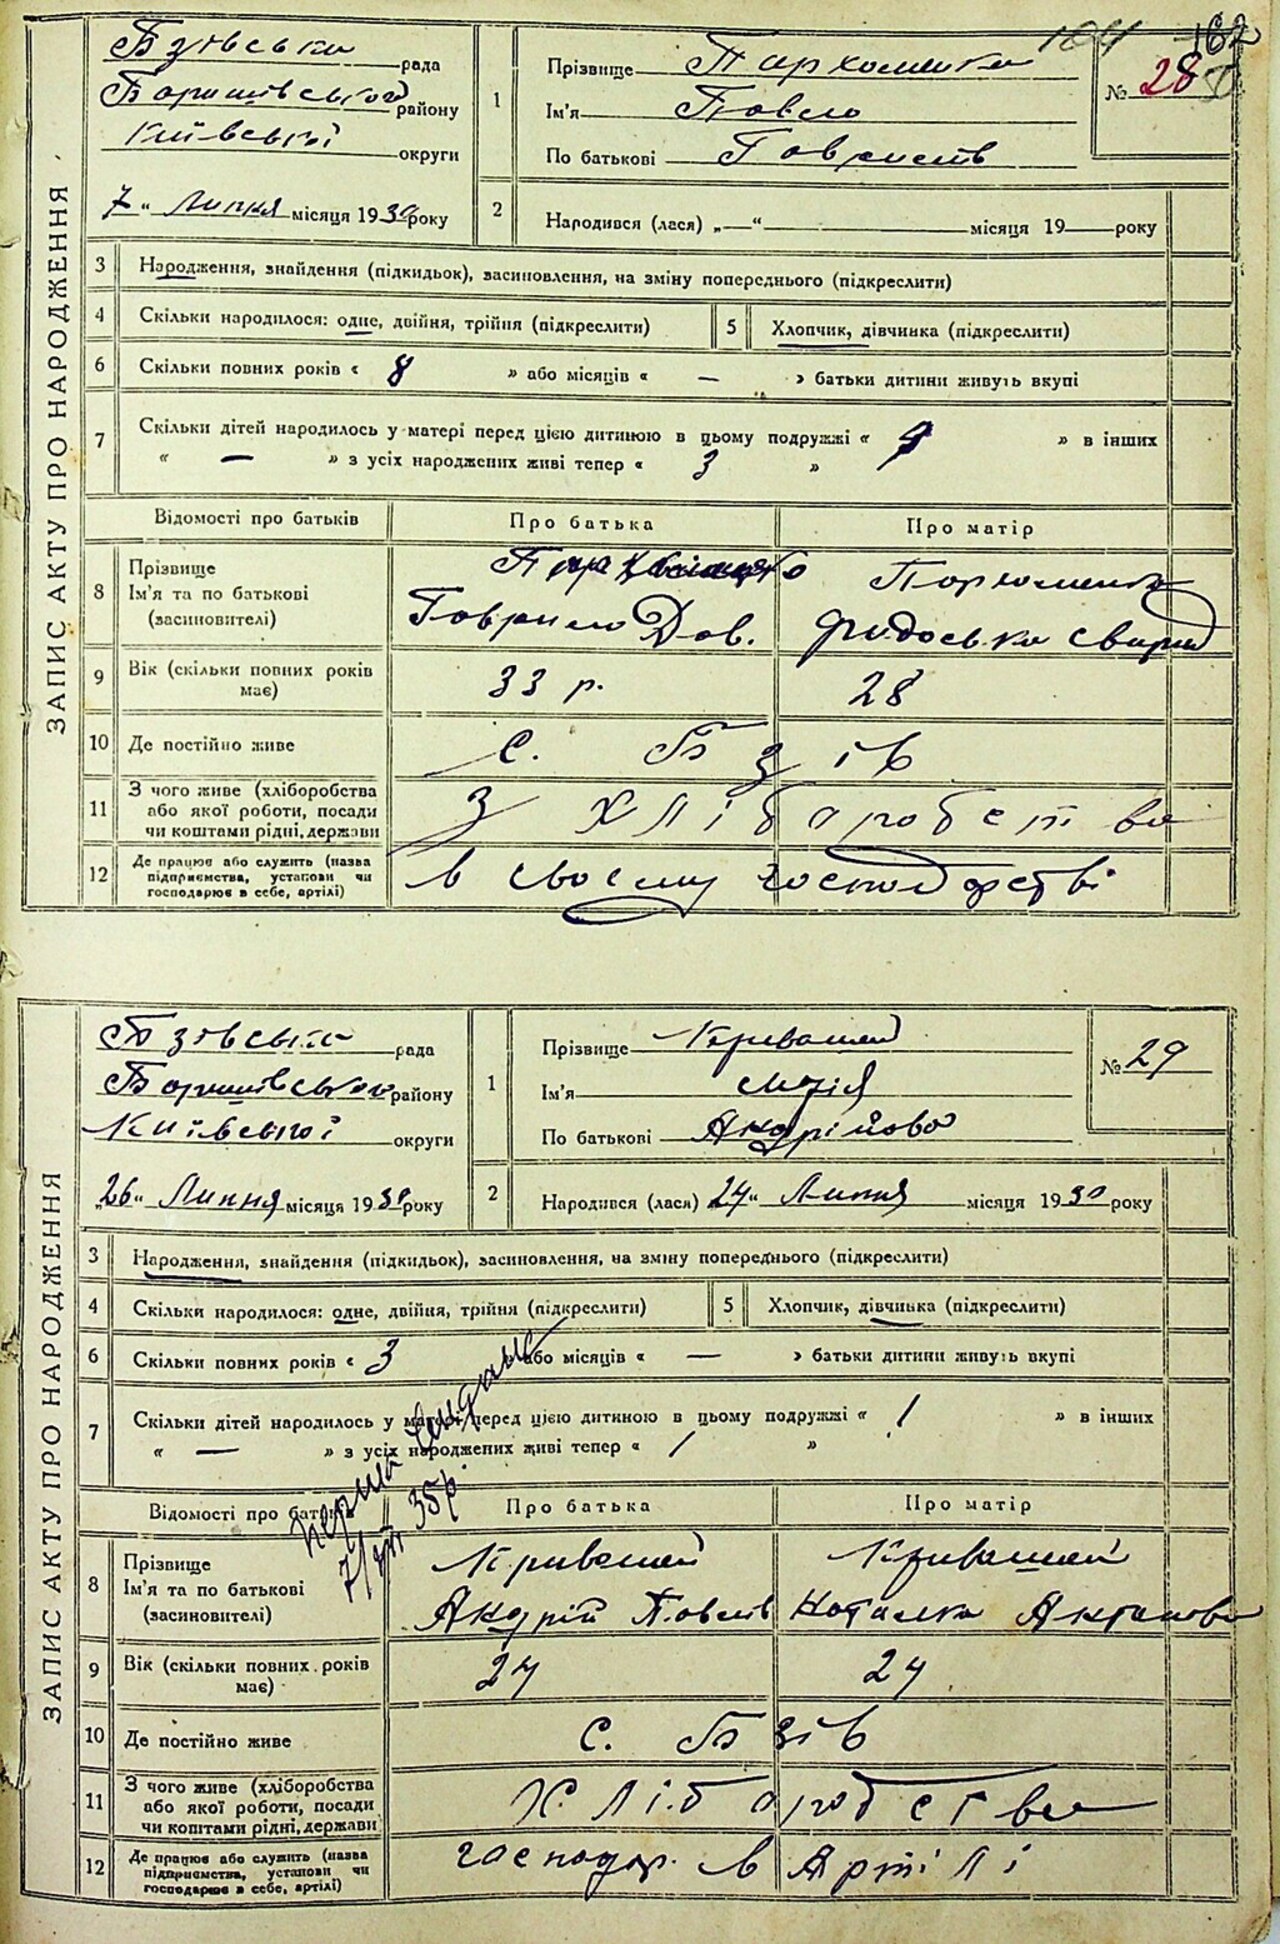 162
ЗАПИС АКТУ ПРО НАРОДЖЕННЯ
Бзівська рада
Баришівського району
Київської округи
7 „ Липня місяця 1930 року
1 Прізвище Пархоменко
Ім'я Павло
По батькові Гаврилів
№ 28
2 Народився (лася) „—“ місяця 19— року
3 Народження, знайдення (підкидьок), засиновлення, на зміну попереднього (підкреслити)
4 Скільки народилося: одне, двійня, трійня (підкреслити) 5 Хлопчик, дівчинка (підкреслити)
6 Скільки повних років « 8 » або місяців « — » батьки дитини живуть вкупі
7 Скільки дітей народилось у матері перед цією дитиною в цьому подружжі « » в інших
« — » з усіх народжених живі тепер « 3 »
Відомості про батьків Про батька Про матір
8 Прізвище
Ім'я та по батькові
(засиновителі)
Пархоменко
Гаврило Дав.
Пархоменко
9 Вік (скільки повних років
має)
33 р. 28
10 Де постійно живе с. Бзів
11 З чого живе (хліборобства
або якої роботи, посади
чи коштами рідні, держави
З хліборобства
12 Де працює або служить (назва
підприємства, установи чи
господарює в себе, артілі)
в своєму господарстві
ЗАПИС АКТУ ПРО НАРОДЖЕННЯ
Бзівська рада
Баришівського району
Київської округи
„26“ Липня місяця 1930 року
1 Прізвище Кривошей
Ім'я Марія
По батькові Андрійова
№ 29
2 Народився (лася) 24“ Липня місяця 1930 року
3 Народження, знайдення (підкидьок), засиновлення, на зміну попереднього (підкреслити)
4 Скільки народилося: одне, двійня, трійня (підкреслити) 5 Хлопчик, дівчинка (підкреслити)
6 Скільки повних років « 3 » або місяців « — » батьки дитини живуть вкупі
7 Скільки дітей народилось у матері перед цією дитиною в цьому подружжі « 1 » в інших
« — » з усіх народжених живі тепер « 1 »
35р.
Відомості про батьків Про батька Про матір
8 Прізвище
Ім'я та по батькові
(засиновителі)
Кривошей
Андрій Павлів
Кривошей
Наталка
9 Вік (скільки повних років
має)
24 24
10 Де постійно живе с. Бзів
11 З чого живе (хліборобства
або якої роботи, посади
чи коштами рідні, держави
Хліборобства
12 Де працює або служить (назва
підприємства, установи чи
господарює в себе, артілі)
господар. в Артілі